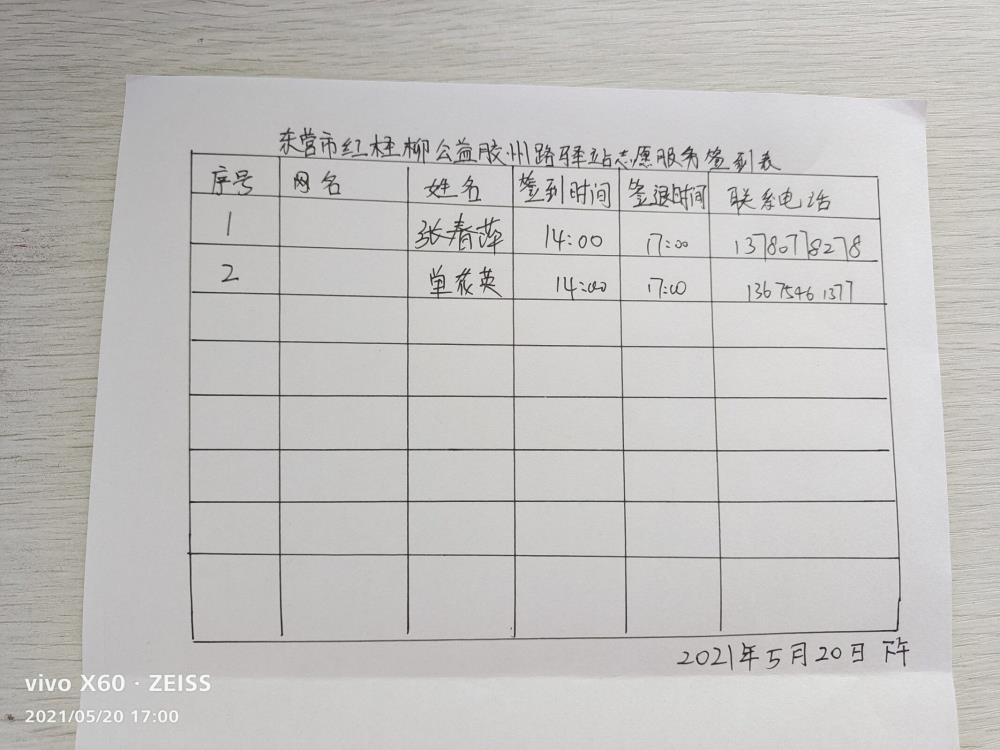 东营市红柽柳公益胶州路驿站志愿服务签到表
序号 网名 姓名 签到时间 签退时间 联系电话
1 张春萍 14:00 17:00 13780778278
2 单花英 14:00 17:00 13675461377
2021年5月20日 下午
vivo X60 · ZEISS
2021/05/20 17:00